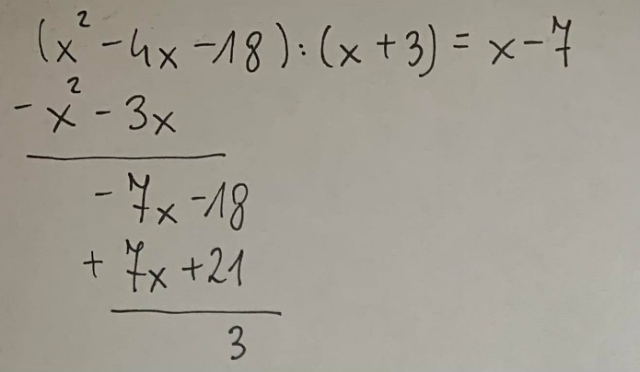 (x² - 4x - 18) : (x + 3) = x - 7
- x² - 3x
- 7x - 18
+ 7x + 21
3